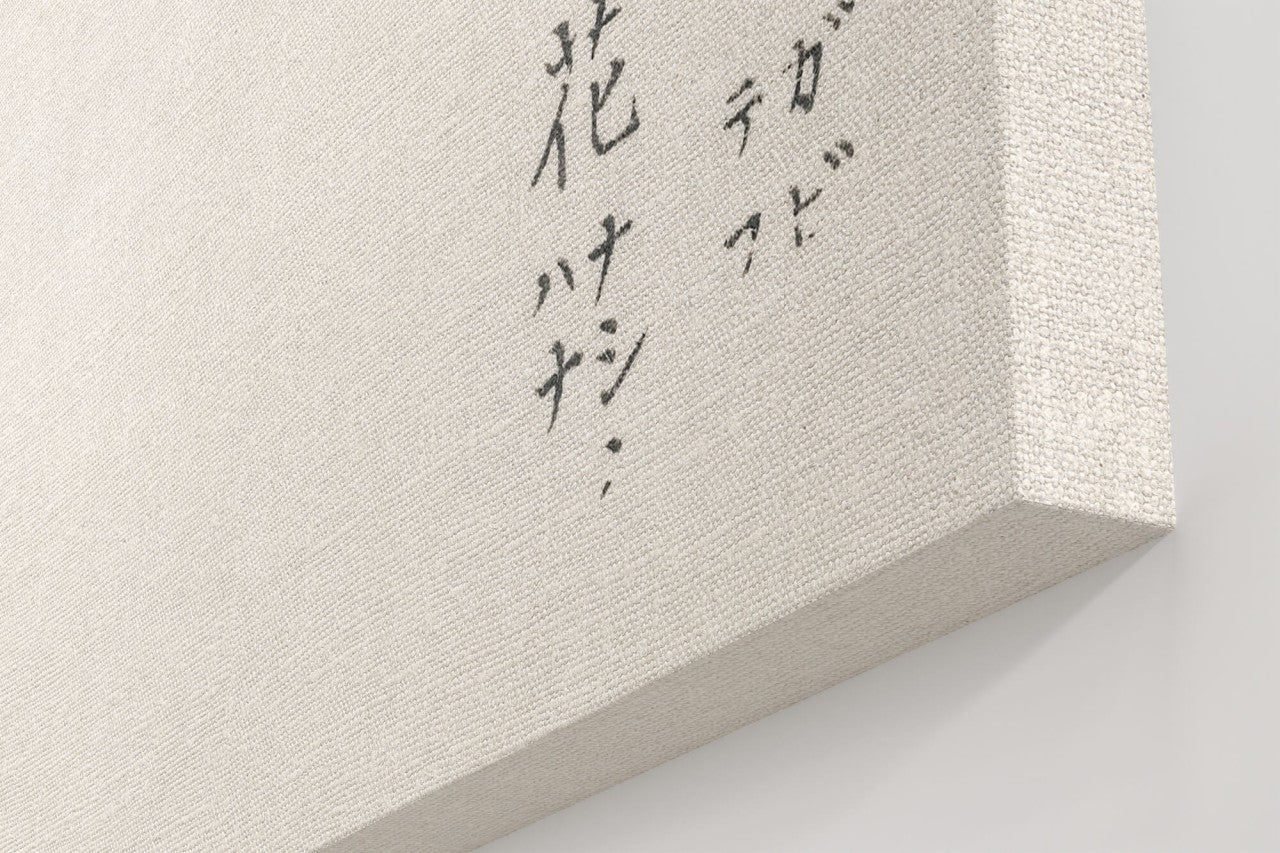 ガビ
テア
花
ナシ
ハナ